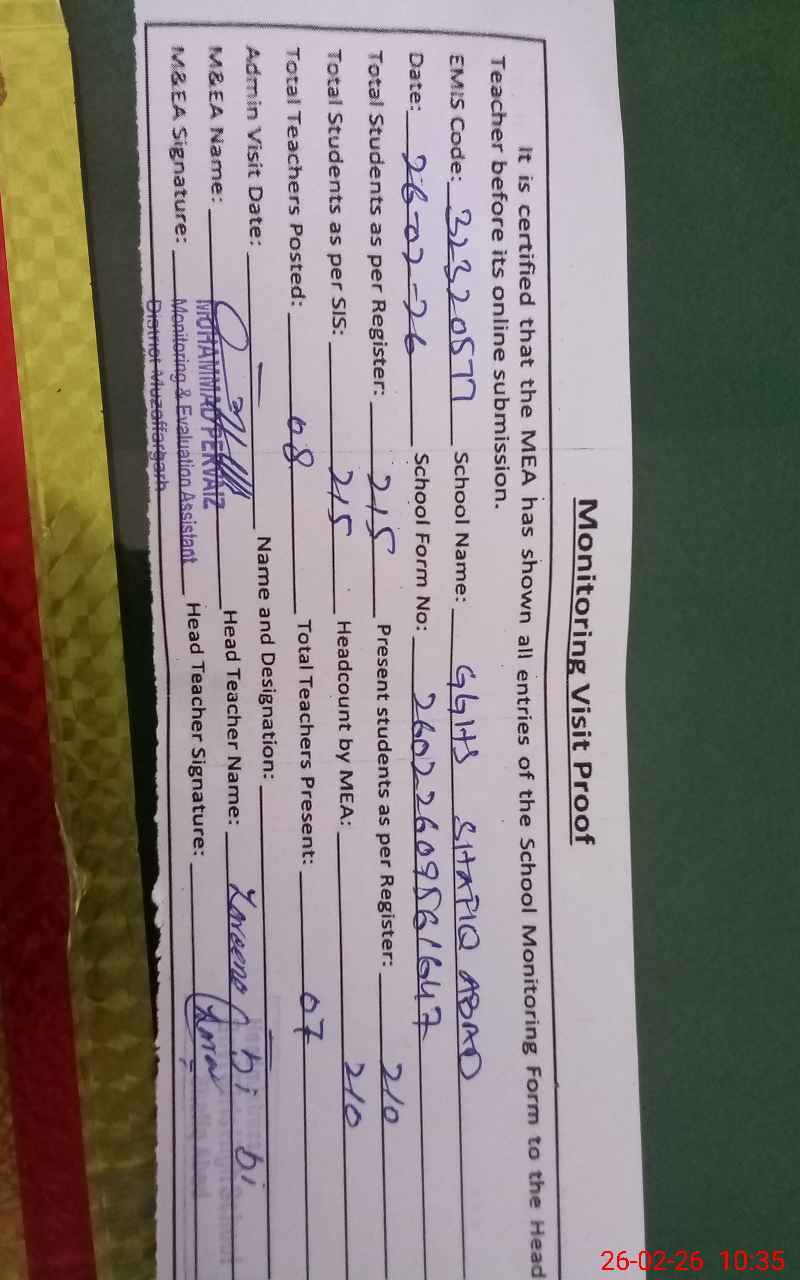 Monitoring Visit Proof
It is certified that the MEA has shown all entries of the School Monitoring Form to the Head
Teacher before its online submission.
EMIS Code: 32320577 School Name: GGHS SHAFIQ ABAD
Date: 26-02-26 School Form No: 26022609561647
Total Students as per Register: 215 Present students as per Register: 210
Total Students as per SIS: 215 Headcount by MEA: 210
Total Teachers Posted: 08 Total Teachers Present: 07
Admin Visit Date: — Name and Designation: —
M&EA Name: MUHAMMAD PERVAIZ Head Teacher Name: bi bi
M&EA Signature: Monitoring & Evaluation Assistant Head Teacher Signature:
District Muzaffargarh
26-02-26 10:35